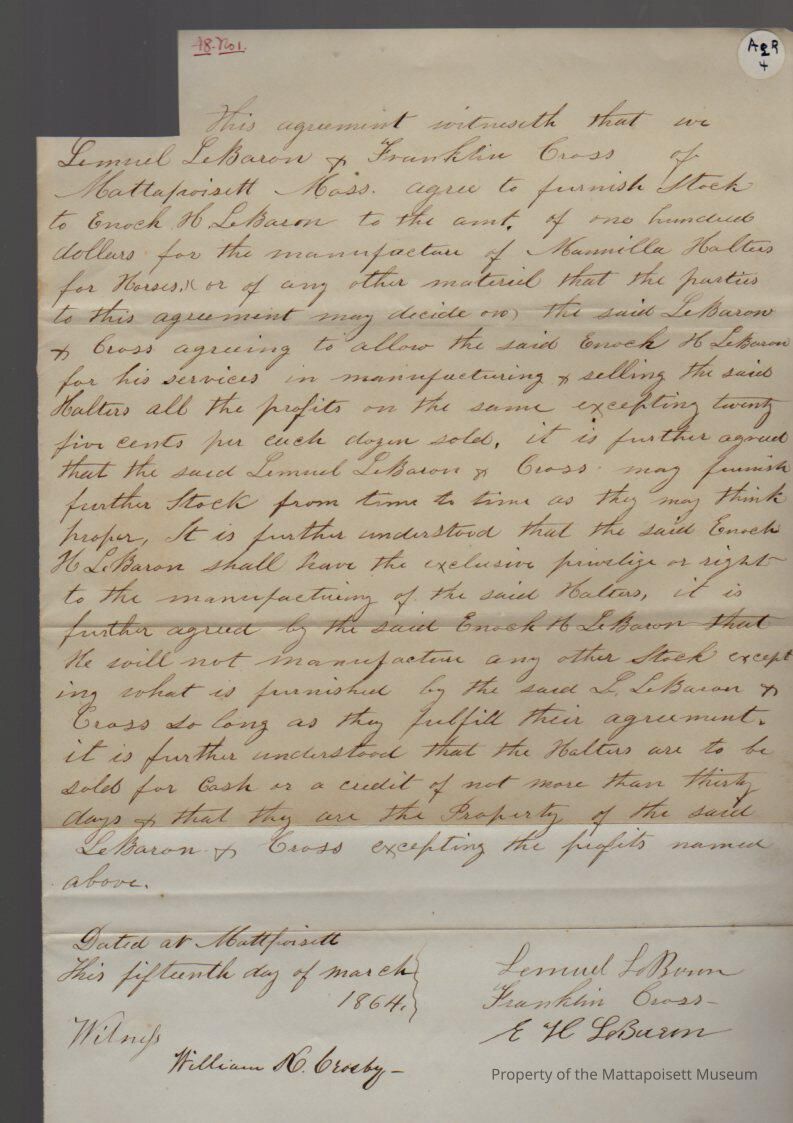 18. No1.
AgR
4
This agreement witneseth that we
Lemuel LeBaron & Franklin Cross of
Mattapoisett Mass. agree to furnish Stock
to Enoch H. LeBaron to the amt. of one hundred
dollars for the manufacture of Mannilla Halters
for Horses, (or of any other materiel that the parties
to this agreement may decide on) the said LeBaron
& Cross agreeing to allow the said Enoch H LeBaron
for his services in manufacturing & selling the said
Halters all the profits on the same excepting twenty
five cents per each dozen sold, it is further agreed
that the said Lemuel LeBaron & Cross may furnish
further Stock from time to time as they may think
proper, It is further understood that the said Enoch
H LeBaron shall have the exclusive privilige or right
to the manufactureing of the said Halters, it is
further agreed by the said Enoch H LeBaron that
He will not manufacture any other Stock except
ing what is furnished by the said L. LeBaron &
Cross so long as they fulfill their agreement.
it is further understood that the Halters are to be
sold for Cash or a credit of not more than thirty
days & that they are the Property of the said
LeBaron & Cross excepting the profits named
above.
Dated at Mattpoisett
This fifteenth day of march
1864.
Lemuel LeBaron
Franklin Cross
E H LeBaron
Witness
William N. Crosby
Property of the Mattapoisett Museum